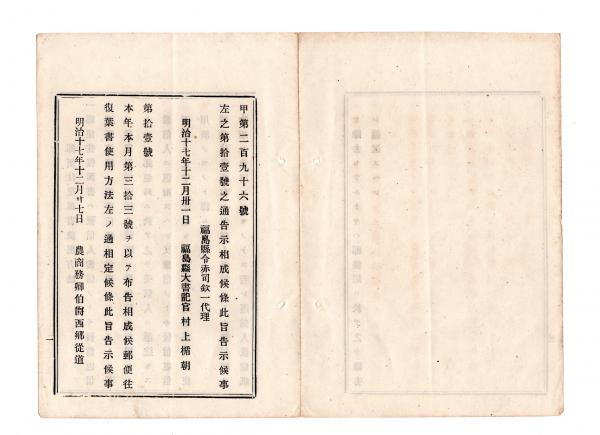 甲第二百九十六號
左之第拾壹號之通告示相成候條此旨告示候事
福島縣令赤司欽一代理
明治十七年十二月卅一日 福島縣大書記官 村上楯朝
第拾壹號
本年本月第三拾三號ヲ以テ布告相成候郵便往
復葉書使用方法左ノ通相定候條此旨告示候事
明治十七年十二月廿七日 農商務卿伯爵西鄉從道